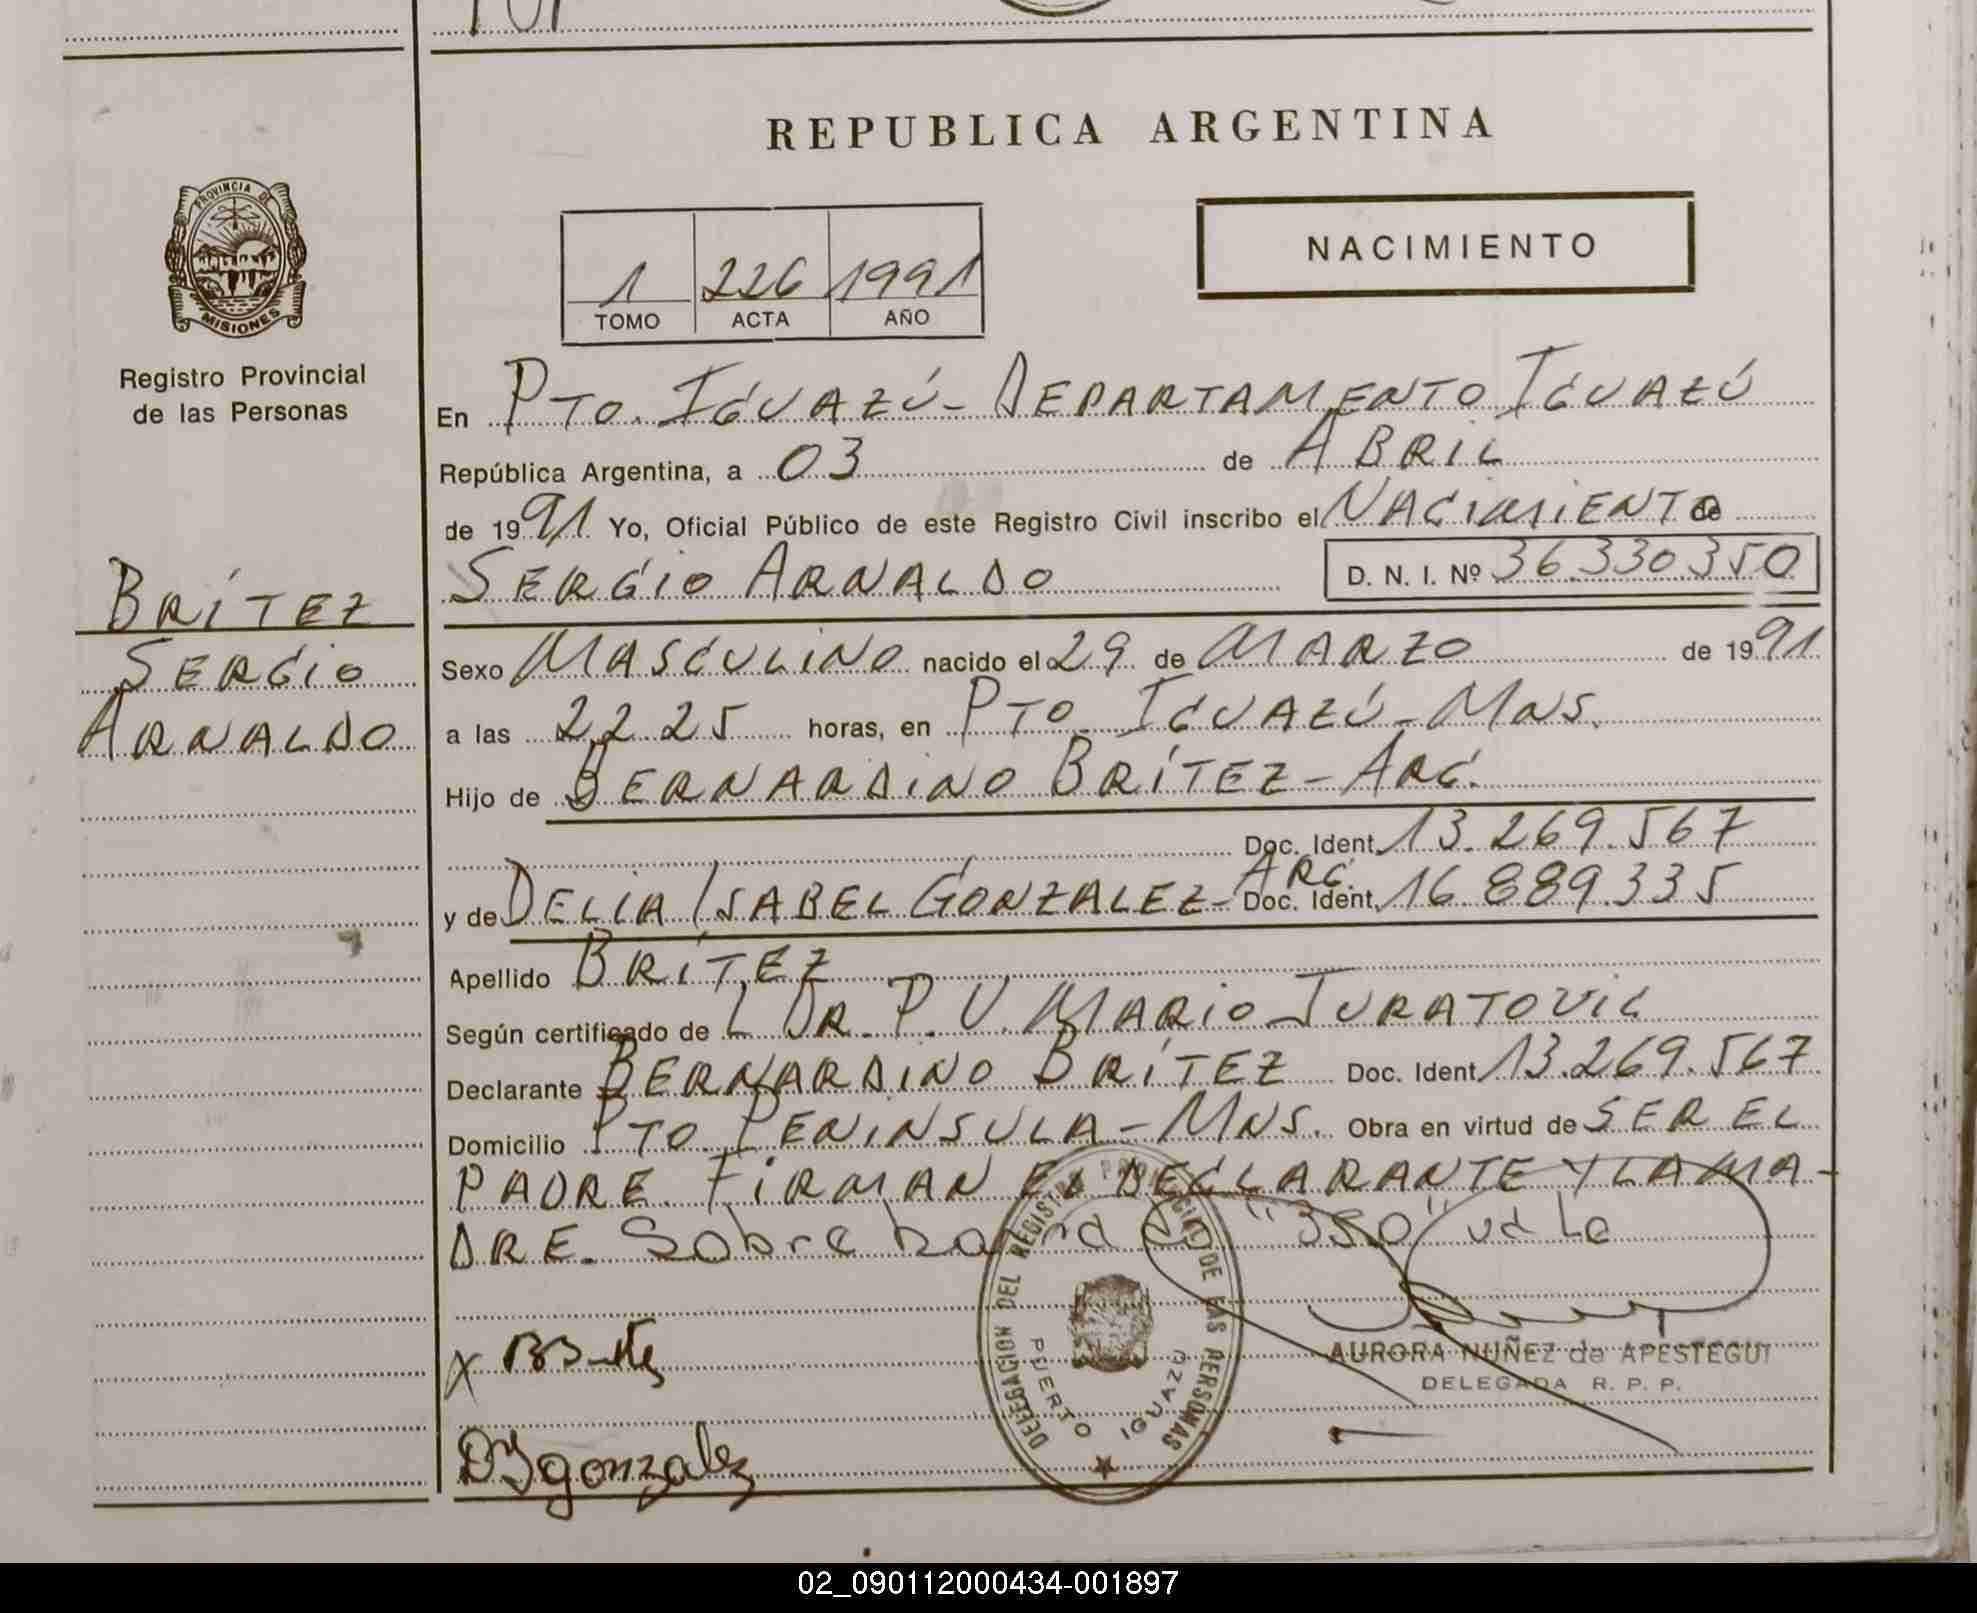 REPUBLICA ARGENTINA
PROVINCIA DE
MISIONES
Registro Provincial
de las Personas
BRÍTEZ
SERGIO
ARNALDO
1 226 1991
TOMO ACTA AÑO
NACIMIENTO
En PTO. IGUAZÚ - DEPARTAMENTO IGUAZÚ
República Argentina, a 03 de ABRIL
de 1991 Yo, Oficial Público de este Registro Civil inscribo el NACIMIENTO de
SERGIO ARNALDO D. N. I. Nº 36.330.350
Sexo MASCULINO nacido el 29 de MARZO de 1991
a las 22 25 horas, en PTO. IGUAZÚ - MNS.
Hijo de BERNARDINO BRÍTEZ - ARG.
Doc. Ident. 13.269.567
ARG.
y de DELIA ISABEL GONZALEZ - Doc. Ident. 16.889.335
Apellido BRÍTEZ
Según certificado de L DR. P. V. MARIO JURATOVIC
Declarante BERNARDINO BRÍTEZ Doc. Ident. 13.269.567
Domicilio PTO PENINSULA - MNS. Obra en virtud de SER EL
PADRE. FIRMAN EL DECLARANTE Y LA MA-
DRE. Sobre "350" vale
DELEGACION DEL REGISTRO PROVINCIAL DE LAS PERSONAS
PUERTO IGUAZU
AURORA NUÑEZ de APESTEGUI
DELEGADA R. P. P.
X
DIgonzalez
02_090112000434-001897